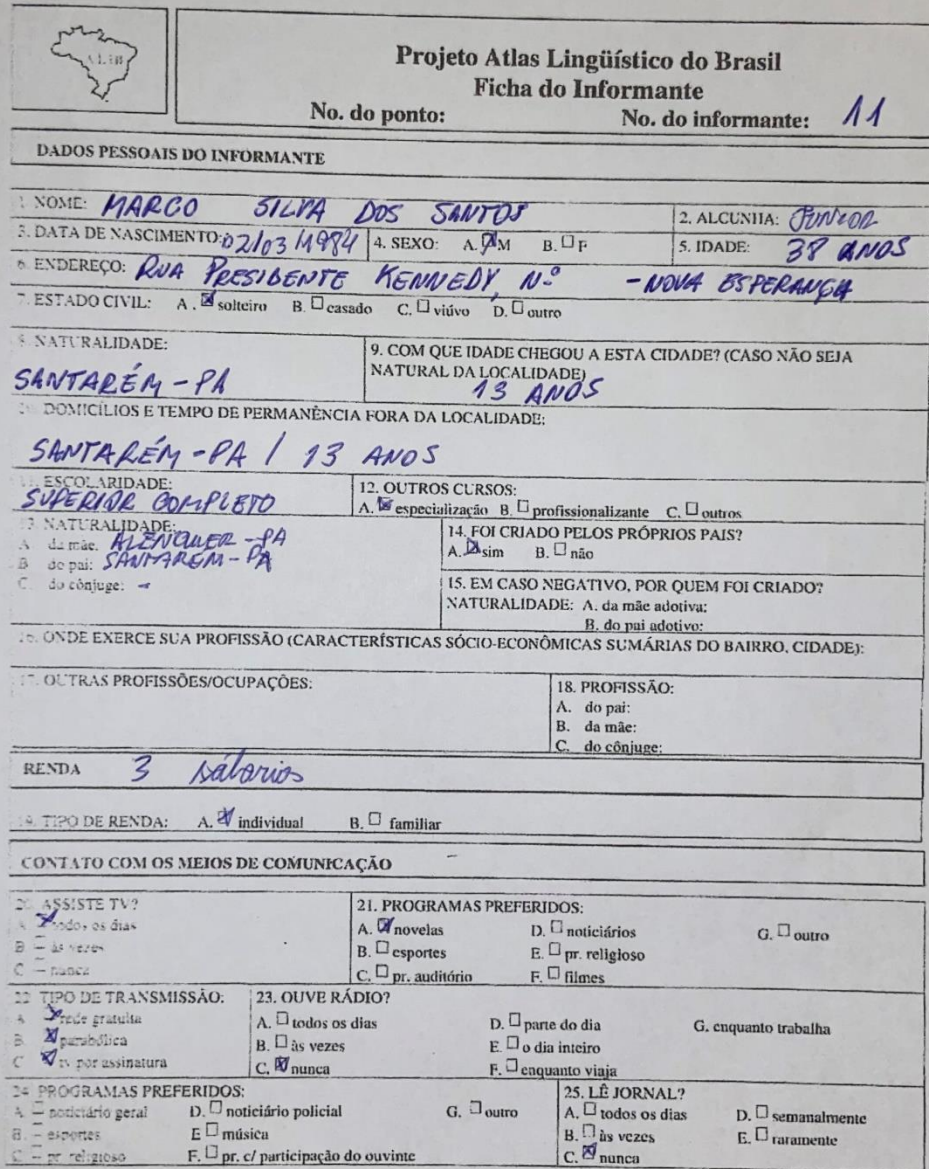 ALiB
Projeto Atlas Lingüístico do Brasil
Ficha do Informante
No. do ponto: No. do informante: 11
DADOS PESSOAIS DO INFORMANTE
1. NOME: MARCO SILVA DOS SANTOS
2. ALCUNHA: JUNIOR
3. DATA DE NASCIMENTO: 02/03/1984 4. SEXO: A. ☒ M B. ☐ F 5. IDADE: 38 ANOS
6. ENDEREÇO: RUA PRESIDENTE KENNEDY, Nº - NOVA ESPERANÇA
7. ESTADO CIVIL: A. ☒ solteiro B. ☐ casado C. ☐ viúvo D. ☐ outro
8. NATURALIDADE:
SANTARÉM - PA
9. COM QUE IDADE CHEGOU A ESTA CIDADE? (CASO NÃO SEJA
NATURAL DA LOCALIDADE)
13 ANOS
10. DOMICÍLIOS E TEMPO DE PERMANÊNCIA FORA DA LOCALIDADE:
SANTARÉM - PA / 13 ANOS
11. ESCOLARIDADE:
SUPERIOR COMPLETO
12. OUTROS CURSOS:
A. ☒ especialização B. ☐ profissionalizante C. ☐ outros
13. NATURALIDADE:
A. da mãe: ALENQUER - PA
B. do pai: SANTARÉM - PA
C. do cônjuge: -
14. FOI CRIADO PELOS PRÓPRIOS PAIS?
A. ☒ sim B. ☐ não
15. EM CASO NEGATIVO, POR QUEM FOI CRIADO?
NATURALIDADE: A. da mãe adotiva:
B. do pai adotivo:
16. ONDE EXERCE SUA PROFISSÃO (CARACTERÍSTICAS SÓCIO-ECONÔMICAS SUMÁRIAS DO BAIRRO, CIDADE):
17. OUTRAS PROFISSÕES/OCUPAÇÕES:
18. PROFISSÃO:
A. do pai:
B. da mãe:
C. do cônjuge:
RENDA 3 sálarios
19. TIPO DE RENDA: A. ☒ individual B. ☐ familiar
CONTATO COM OS MEIOS DE COMUNICAÇÃO
20. ASSISTE TV?
A. ☒ todos os dias
B. ☐ às vezes
C. ☐ nunca
21. PROGRAMAS PREFERIDOS:
A. ☒ novelas D. ☐ noticiários G. ☐ outro
B. ☐ esportes E. ☐ pr. religioso
C. ☐ pr. auditório F. ☐ filmes
22. TIPO DE TRANSMISSÃO:
A. ☒ rede gratuita
B. ☒ parabólica
C. ☒ tv por assinatura
23. OUVE RÁDIO?
A. ☐ todos os dias D. ☐ parte do dia G. enquanto trabalha
B. ☐ às vezes E. ☐ o dia inteiro
C. ☒ nunca F. ☐ enquanto viaja
24. PROGRAMAS PREFERIDOS:
A. ☐ noticiário geral D. ☐ noticiário policial G. ☐ outro
B. ☐ esportes E ☐ música
C. ☐ pr. religioso F. ☐ pr. c/ participação do ouvinte
25. LÊ JORNAL?
A. ☐ todos os dias D. ☐ semanalmente
B. ☐ às vezes E. ☐ raramente
C. ☒ nunca